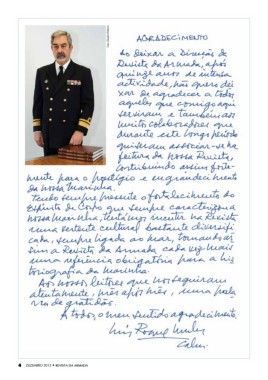 AGRADECIMENTO
Ao deixar a Direcção da
Revista da Armada, após
quinze anos de intensa
actividade, não quero dei-
xar de agradecer a todos
aqueles que comigo aqui
serviram e também aos
muitos colaboradores que
durante este longo período
quiseram associar-se na
feitura da nossa Revista,
contribuindo assim forte-
mente para o prestígio e engrandecimento
da nossa marinha.
Tendo sempre presente o fortalecimento do
espírito de Corpo que sempre caracterizou a
nossa marinha, tentámos manter na Revista
uma vertente cultural bastante diversifi-
cada, sempre ligada ao mar, tornando as-
sim a Revista da Armada cada vez mais
uma referência obrigatória para a his-
toriografia da marinha.
Aos nossos leitores que nos seguiram
atentamente, mês após mês, uma pala-
vra de gratidão.
A todos, o meu sentido agradecimento,
Luís Roque
Calm.
4 DEZEMBRO 2013 • REVISTA DA ARMADA